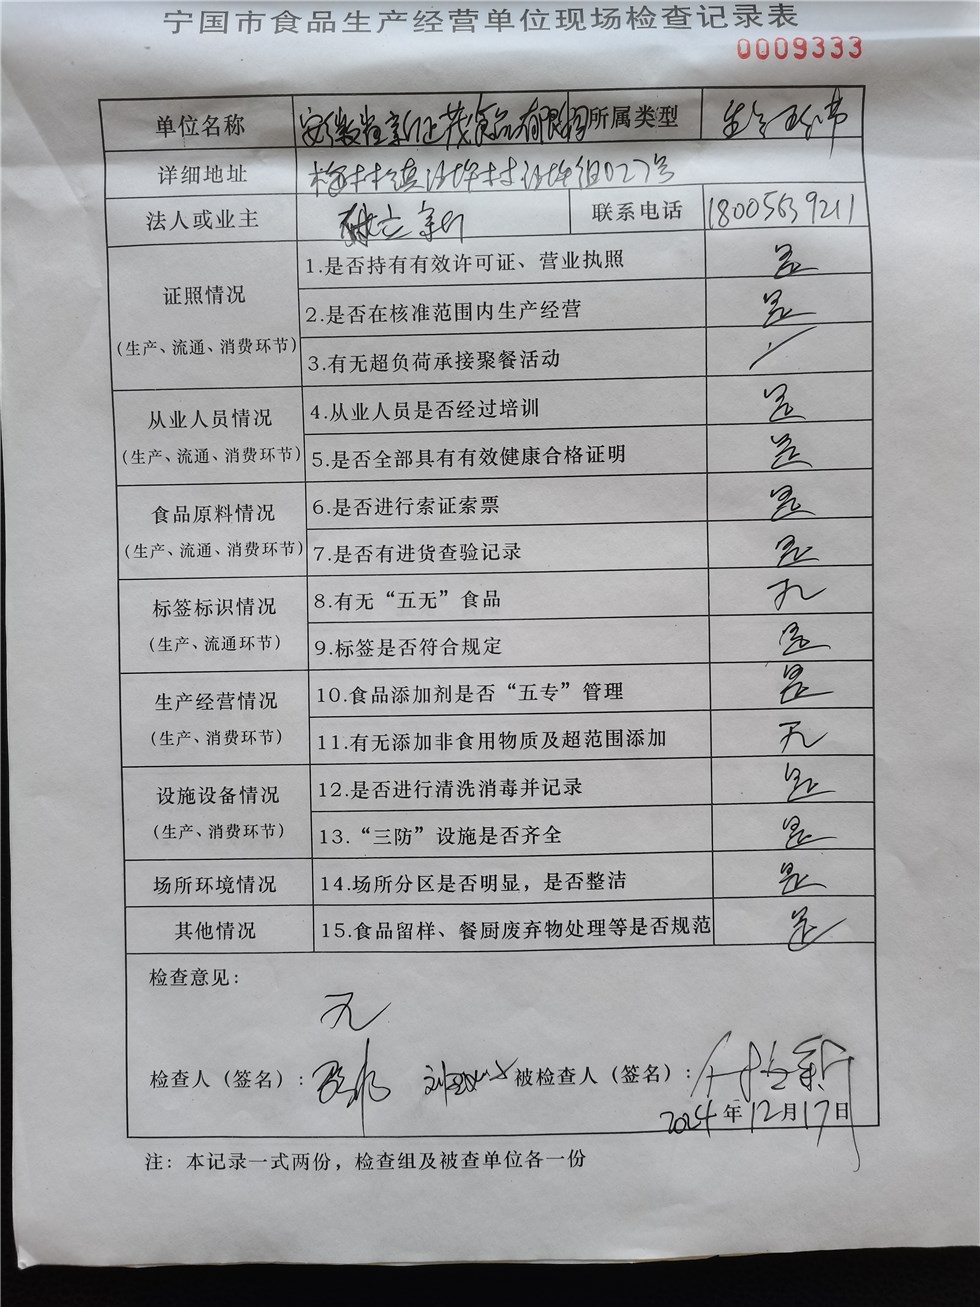 宁国市食品生产经营单位现场检查记录表
0009333
单位名称 安徽 食品有限公司 所属类型 生产环节
详细地址 梅林镇沙埠村沙埠组027号
法人或业主 联系电话 18005639211
证照情况
(生产、流通、消费环节)
1.是否持有有效许可证、营业执照 是
2.是否在核准范围内生产经营 是
3.有无超负荷承接聚餐活动 /
从业人员情况
(生产、流通、消费环节)
4.从业人员是否经过培训 是
5.是否全部具有有效健康合格证明 是
食品原料情况
(生产、流通、消费环节)
6.是否进行索证索票 是
7.是否有进货查验记录 是
标签标识情况
(生产、流通环节)
8.有无“五无”食品 无
9.标签是否符合规定 是
生产经营情况
(生产、消费环节)
10.食品添加剂是否“五专”管理 是
11.有无添加非食用物质及超范围添加 无
设施设备情况
(生产、消费环节)
12.是否进行清洗消毒并记录 是
13.“三防”设施是否齐全 是
场所环境情况 14.场所分区是否明显，是否整洁 是
其他情况 15.食品留样、餐厨废弃物处理等是否规范 是
检查意见:
无
检查人（签名）: 被检查人（签名）:
2024年12月17日
注: 本记录一式两份，检查组及被查单位各一份